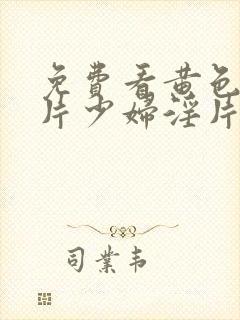 免費看黄色
片少婦淫片
司業韦